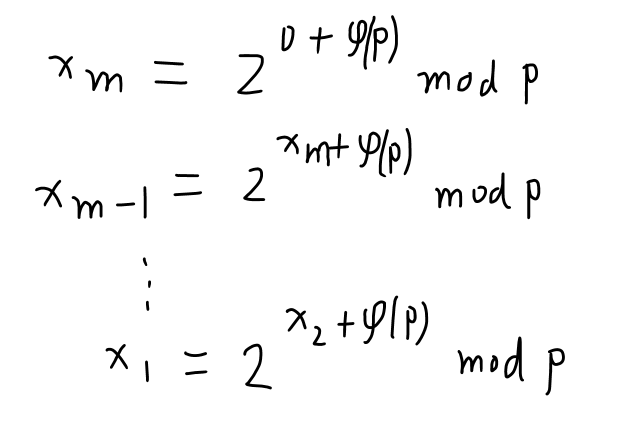 x_m = 2^{0 + φ(p)} mod p
x_{m-1} = 2^{x_m + φ(p)} mod p
⋮
x_1 = 2^{x_2 + φ(p)} mod p